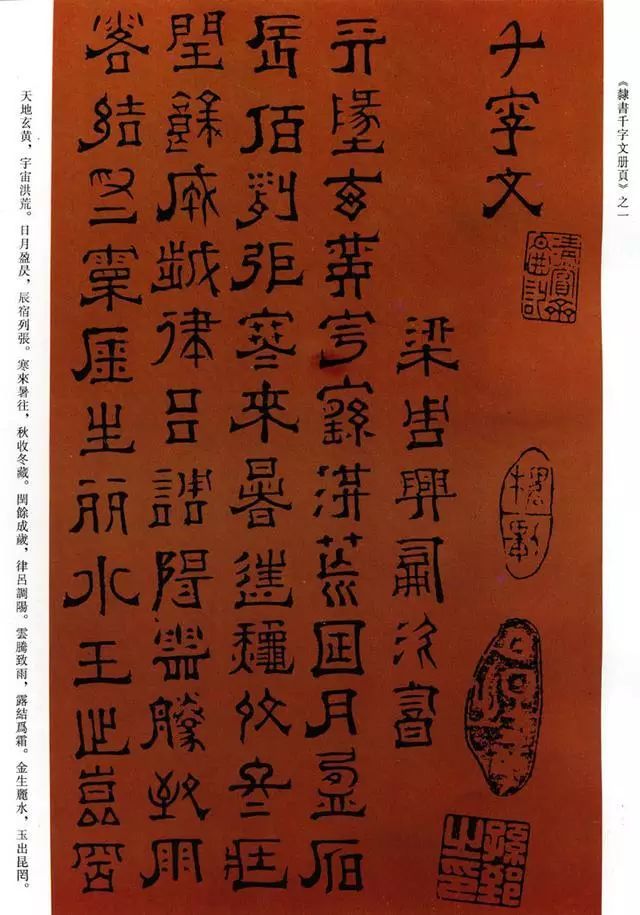 《隸書千字文册頁》之一
千字文
梁周興嗣次
天地玄黃宇宙洪荒日月盈昃
辰宿列張寒來暑往秋收冬藏
閏餘成歲律吕調陽雲騰致雨
露結爲霜金生丽水玉出崑罡
天地玄黃，宇宙洪荒。日月盈昃，辰宿列張。寒來暑往，秋收冬藏。閏餘成歲，律呂調陽。雲騰致雨，露結爲霜。金生麗水，玉出昆罔。